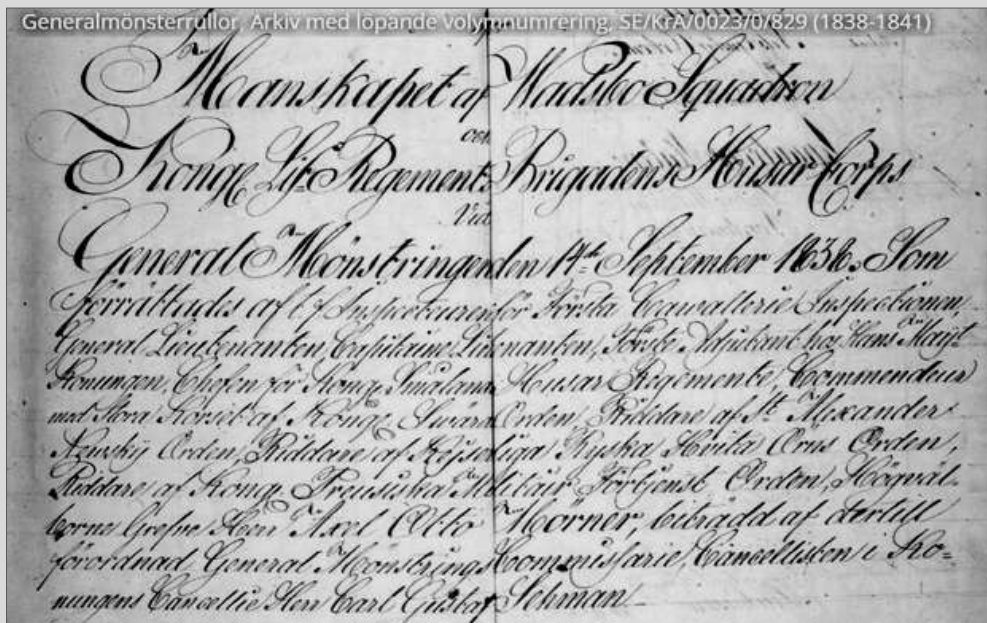 Generalmönsterrullor, Arkiv med löpande volymnumrering, SE/KrA/0023/0/829 (1838-1841)
Manskapet af Wadsbo Squadron
Kongl. Lif Regements Brigadens Husar Corps
Vid
General Mönstringen den 14de September 1838. Som
förrättades af t.f. Inspecteuren för Första Cawallerie Inspectionen,
General Lieutenanten, Capitaine Lieutenanten, Förste Adjutant hos Hans Maj:t
Konungen, Chefen för Kongl. Smålands Husar Regemente, Commendeur
med Stora Korset af Kongl. Swärds Orden, Riddare af St. Alexander
Newsky Orden, Riddare af Kejserliga Ryska Hvita Örns Orden,
Riddare af Kongl. Preusiska Militair Förtjenst Orden, Högväl-
borne Grefve Herr Axel Otto Mörner, biträdd af dertill
förordnad General Mönstrings Commissarie, Cancellisten i Ko-
nungens Cancellie Herr Carl Gustaf Sehman